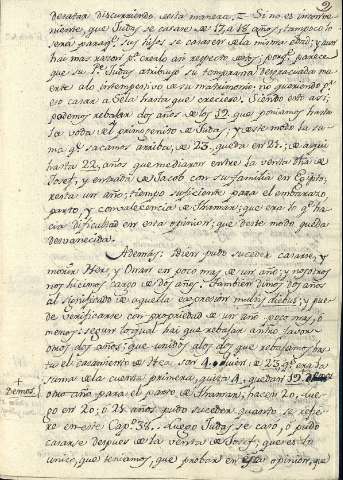 2
desatar discurriendo de esta manera. Si no es inconve
niente, que Judas se casase de 17, a 18 años, tampoco lo
será para q.e sus hijos se casasen de la misma edad; y aun
hai mas razon p.a creerlo asi respecto de estos; porq.e parece
que su P.e Judas atribuyo su temprana desgraciada mu
erte a lo intempestivo de su matrimonio no queriendo p.r
eso casar a Sela hasta que creciese. Siendo esto asi;
podemos rebajar dos años de los 19 que poniamos hasta
la boda del primogenito de Judas, y de este modo la su
ma q.e sacamos arriba, de 23, queda en 21: de aqui
hasta 22 años que mediaron entre la venta de
Josef, y entrada de Jacob con su familia en Egipto,
resta un año; tiempo suficiente para el embarazo
parto, y convalecencia de Thamar; que era lo q.e ha
cia dificultad en esta opinion; que de este modo queda
desvanecida.
Además: Bien pudo suceder casarse, y
morir Her, y Onan en poco mas de un año; y nosotros
nos hicimos cargo de dos años. Tambien dimos dos años
al significado de aquella expresion multis diebus; y pue
de verificarse con propiedad de un año poco mas, o
menos: segun lo qual hai que rebajar a otros
dos años: que unidos a los dos que rebajamos has
ta el casamiento de Her, son 4. Luego de 23 q.e era la
suma de la cuenta primera, quita 4, quedan 19
+
Demos
otro año para el parto de Thamar; hacen 20. Lue
go en 20, o 21 años pudo suceder quanto se refie
re en este Cap.o 38. Luego Judas se caso, o pudo
casarse despues de la venta de Josef; que es lo
unico, que teniamos, que probar en esta opinion, que